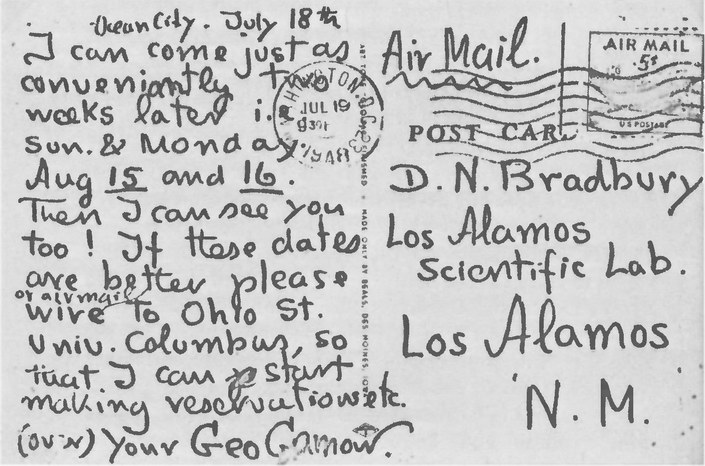 Ocean City. July 18th
I can come just as
conveniantly two
weeks later i.
Sun. & Monday.
Aug 15 and 16.
Then I can see you
too! If these dates
are better please
or airmail
wire to Ohio St.
Univ. Columbus, so
that I can start
making reservations etc.
(over) Your Geo Gamow.
WASHINGTON D.C. 23
JUL 19
930P
1948
MADE ONLY BY BEALS, DES MOINES, IOWA
Air Mail.
AIR MAIL
5¢
U S POSTAGE
POST CARD
D. N. Bradbury
Los Alamos
Scientific Lab.
Los Alamos
N. M.